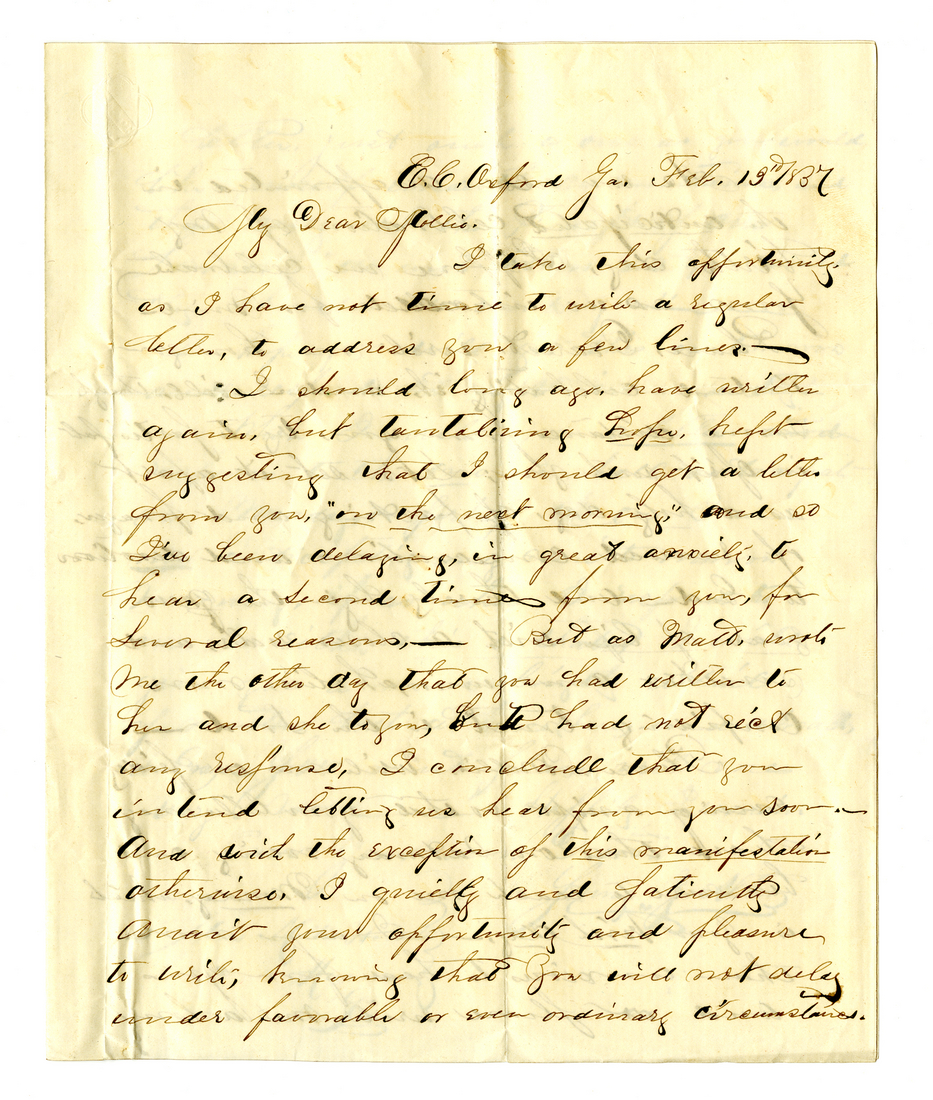 E.C. Oxford Ga. Feb. 13th/1857
My Dear Mollie.
I take this opportunity,
as I have not time to write a regular
letter, to address you a few lines.—
I should long ago, have written
again, but tantalizing Hope, kept
suggesting that I should get a letter
from you, "on the next morning," and so
I've been delaying, in great anxiety, to
hear a second time from you, for
several reasons,— But as Matt, wrote
me the other day that you had written to
her and she to you, but had not rec'd
any response, I conclude that you
intend letting us hear from you soon.—
And with the exception of this manifestation
otherwise, I quietly and patiently
await your opportunity and pleasure
to write, knowing that you will not delay
under favorable or even ordinary circumstances.